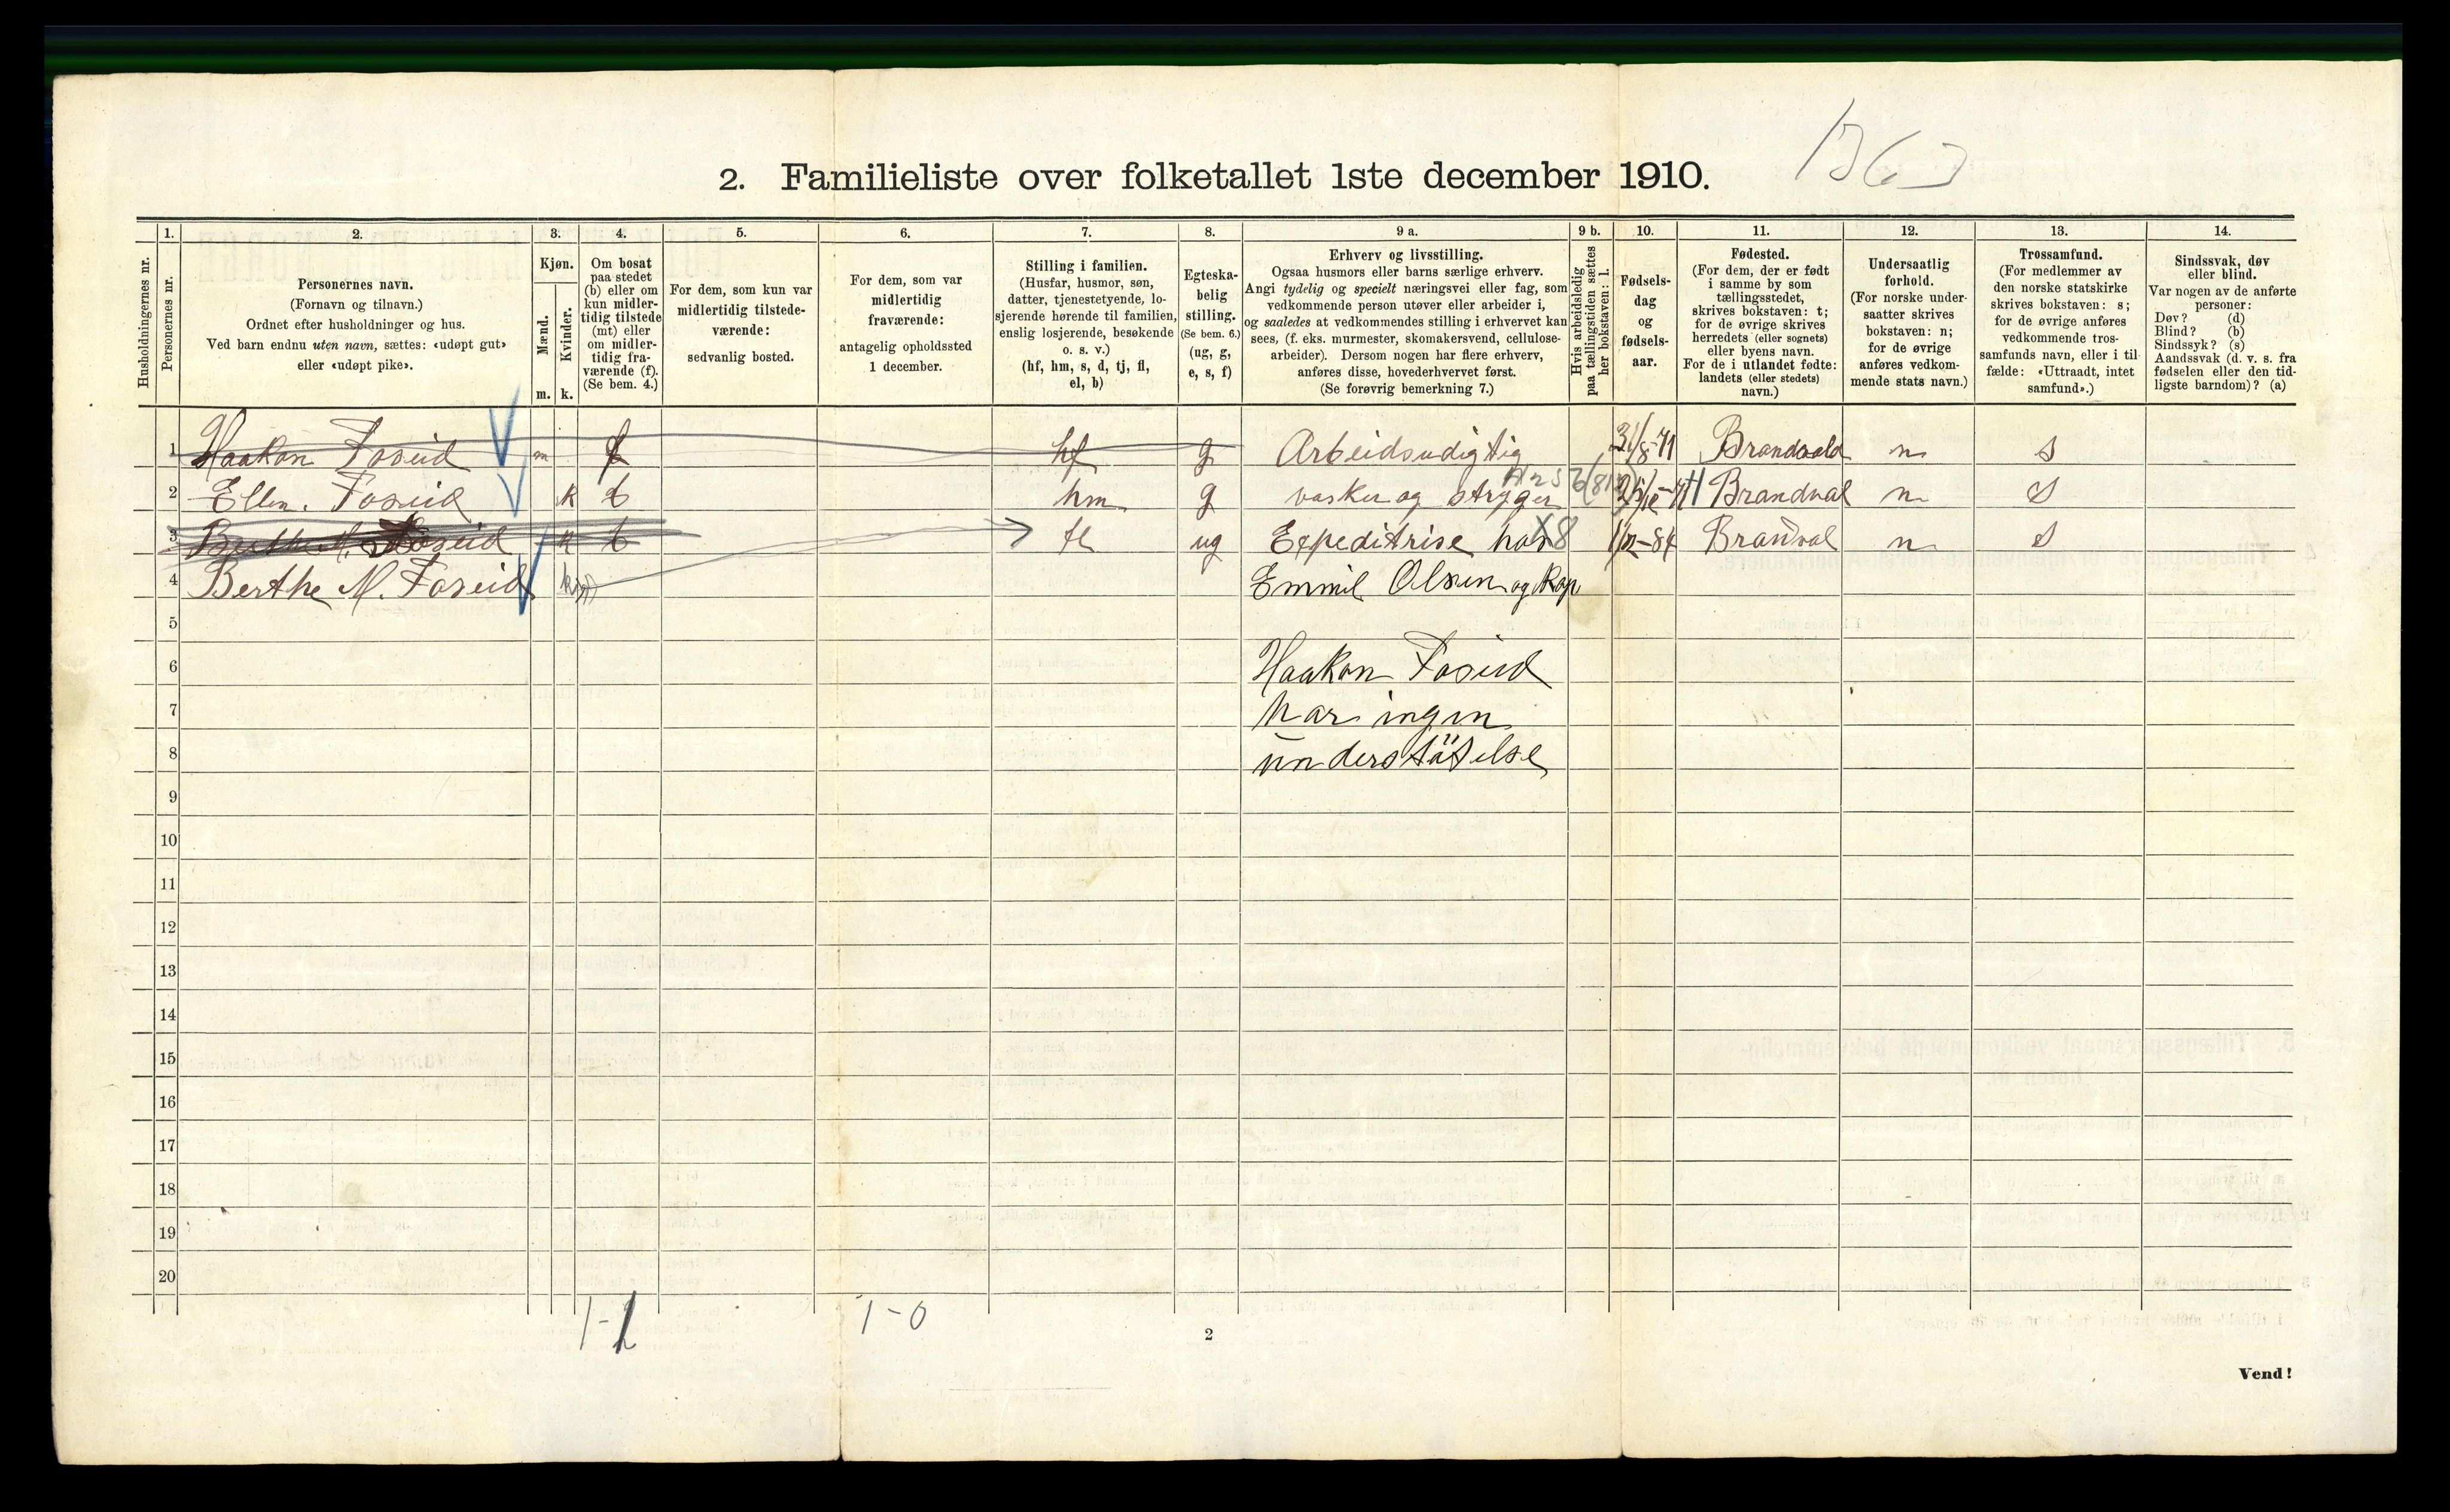 2. Familieliste over folketallet 1ste december 1910.
Husholdningernes nr.
1. Personernes nr.
2. Personernes navn.
(Fornavn og tilnavn.)
Ordnet efter husholdninger og hus.
Ved barn endnu uten navn, sættes: «udøpt gut»
eller «udøpt pike».
3. Kjøn.
Mænd. m.
Kvinder. k.
4. Om bosat
paa stedet
(b) eller om
kun midler-
tidig tilstede
(mt) eller
om midler-
tidig fra-
værende (f).
(Se bem. 4.)
5. For dem, som kun var
midlertidig tilstede-
værende:
sedvanlig bosted.
6. For dem, som var
midlertidig
fraværende:
antagelig opholdssted
1 december.
7. Stilling i familien.
(Husfar, husmor, søn,
datter, tjenestetyende, lo-
sjerende hørende til familien,
enslig losjerende, besøkende
o. s. v.)
(hf, hm, s, d, tj, fl,
el, b)
8. Egteska-
belig
stilling.
(Se bem. 6.)
(ug, g,
e, s, f)
9 a. Erhverv og livsstilling.
Ogsaa husmors eller barns særlige erhverv.
Angi tydelig og specielt næringsvei eller fag, som
vedkommende person utøver eller arbeider i,
og saaledes at vedkommendes stilling i erhvervet kan
sees, (f. eks. murmester, skomakersvend, cellulose-
arbeider). Dersom nogen har flere erhverv,
anføres disse, hovederhvervet først.
(Se forøvrig bemerkning 7.)
9 b. Hvis arbeidsledig
paa tællingstiden sættes
her bokstaven: l.
10. Fødsels-
dag
og
fødsels-
aar.
11. Fødested.
(For dem, der er født
i samme by som
tællingsstedet,
skrives bokstaven: t;
for de øvrige skrives
herredets (eller sognets)
eller byens navn.
For de i utlandet fødte:
landets (eller stedets)
navn.)
12. Undersaatlig
forhold.
(For norske under-
saatter skrives
bokstaven: n;
for de øvrige
anføres vedkom-
mende stats navn.)
13. Trossamfund.
(For medlemmer av
den norske statskirke
skrives bokstaven: s;
for de øvrige anføres
vedkommende tros-
samfunds navn, eller i til-
fælde: «Uttraadt, intet
samfund».)
14. Sindssvak, døv
eller blind.
Var nogen av de anførte
personer:
Døv? (d)
Blind? (b)
Sindssyk? (s)
Aandssvak (d. v. s. fra
fødselen eller den tid-
ligste barndom)? (a)
1 Haakon Foseid m f hf g Arbeidsudigtig 31/8-71 Brandvold n s
2 Ellen. Foseid k b hm g vasker og stryger Brandval n s
3 Berthe M. Foseid k b fl ug Expeditrise hos -84 Brandval n s
4 Berthe M. Foseid k Emmil Olsen og Kop
5
6 Haakon Foseid
7 har ingen
8 understøtelse
9
10
11
12
13
14
15
16
17
18
19
20
1-1 1-0
2
Vend!